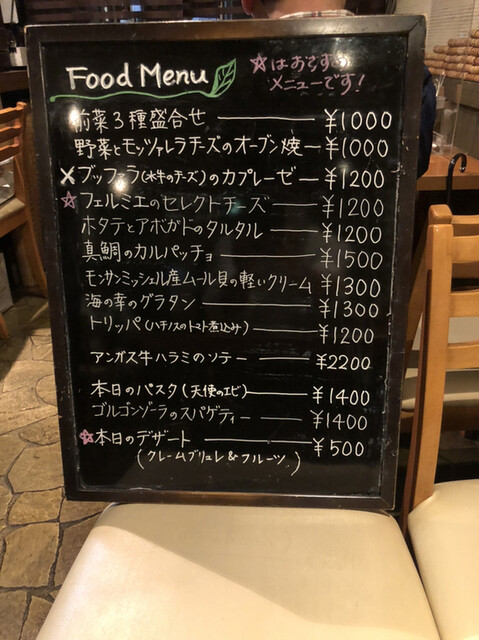 Food Menu
☆はおすすめ
メニューです!
前菜3種盛合せ ¥1000
野菜とモッツァレラチーズのオーブン焼 ¥1000
×ブッファラ(水牛のチーズ)のカプレーゼ ¥1200
☆フェルミエのセレクトチーズ ¥1200
ホタテとアボガドのタルタル ¥1200
真鯛のカルパッチョ ¥1500
モンサンミッシェル産ムール貝の軽いクリーム ¥1300
海の幸のグラタン ¥1300
トリッパ(ハチノスのトマト煮込み) ¥1200
アンガス牛ハラミのソテー ¥2200
本日のパスタ(天使のエビ) ¥1400
ゴルゴンゾーラのスパゲティー ¥1400
☆本日のデザート ¥500
(クレームブリュレ&フルーツ)